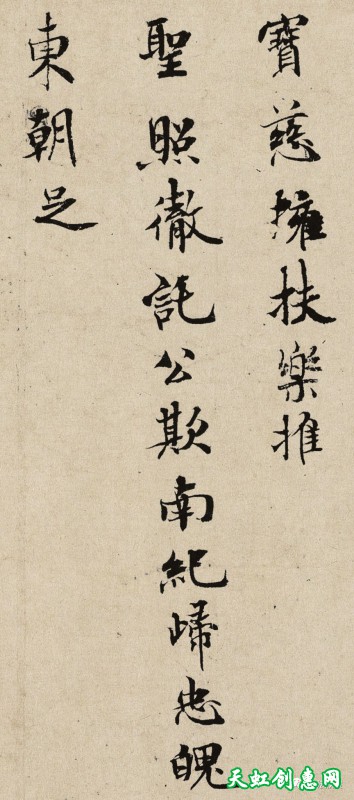 寶慈擁扶樂推
聖照徹託公欺南紀歸忠魄
東朝足
天虹创惠网